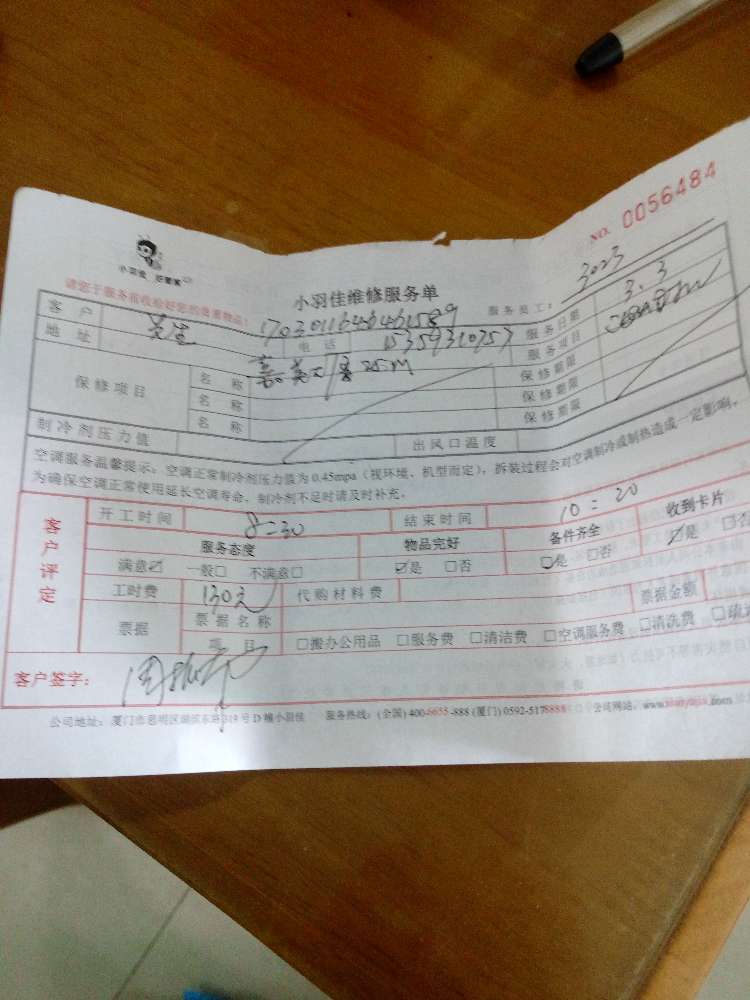 NO. 0056484
小羽佳 好管家
小羽佳维修服务单
请您于服务前收拾好您的贵重物品！
服务员工： 3023
客户 17030116464461589 服务日期 3.3
地址 电话 15359310757 服务项目
保修项目 名称 25M 保修期限
名称 保修期限
名称 保修期限
制冷剂压力值 出风口温度
空调服务温馨提示：空调正常制冷剂压力值为 0.45mpa（视环境、机型而定），拆装过程会对空调制冷或制热造成一定影响，
为确保空调正常使用延长空调寿命，制冷剂不足时请及时补充。
客户评定
开工时间 8:30 结束时间 10:20
服务态度 物品完好 备件齐全 收到卡片
满意☑ 一般□ 不满意□ ☑是 □否 ☑是 □否 ☑是 □否
工时费 130元 代购材料费
票据 票据名称 票据金额
项目 □搬办公用品 □服务费 □清洁费 □空调服务费 □清洗费
客户签字：
公司地址：厦门市思明区湖滨东路319号D幢小羽佳 服务热线：(全国) 400-6655-888 (厦门) 0592-5178888 公司网站：